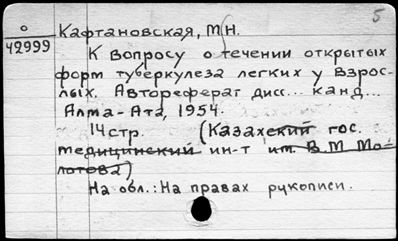 5
о
42999
Кафтановская, М.Н.
К вопросу о течении открытых
форм туберкулеза легких у взрос-
лых. Автореферат дисс... канд...
Алма-Ата, 1954.
14 стр. (Казахский гос.
медицинский ин-т им. В.М Мо-
лотова)
На обл.: На правах рукописи.